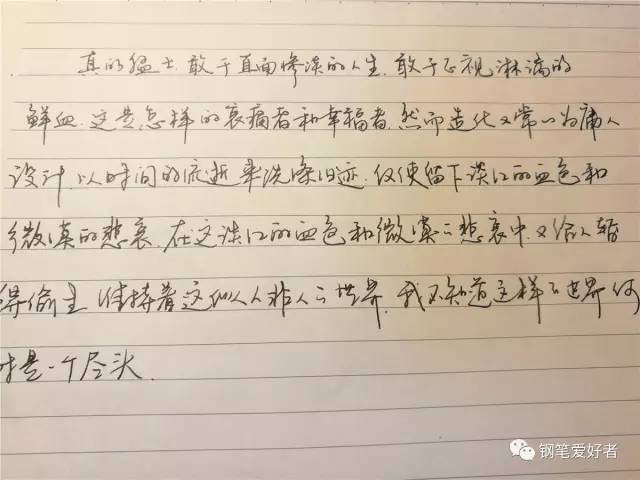 真的猛士,敢于直面惨淡的人生,敢于正视淋漓的
鲜血,这是怎样的哀痛者和幸福者,然而造化又常常为庸人
设计,以时间的流逝来洗涤旧迹,仅使留下淡红的血色和
微漠的悲哀,在这淡红的血色和微漠的悲哀中,又给人暂
得偷生,维持着这似人非人的世界,我不知道这样的世界何
时是一个尽头.
钢笔爱好者